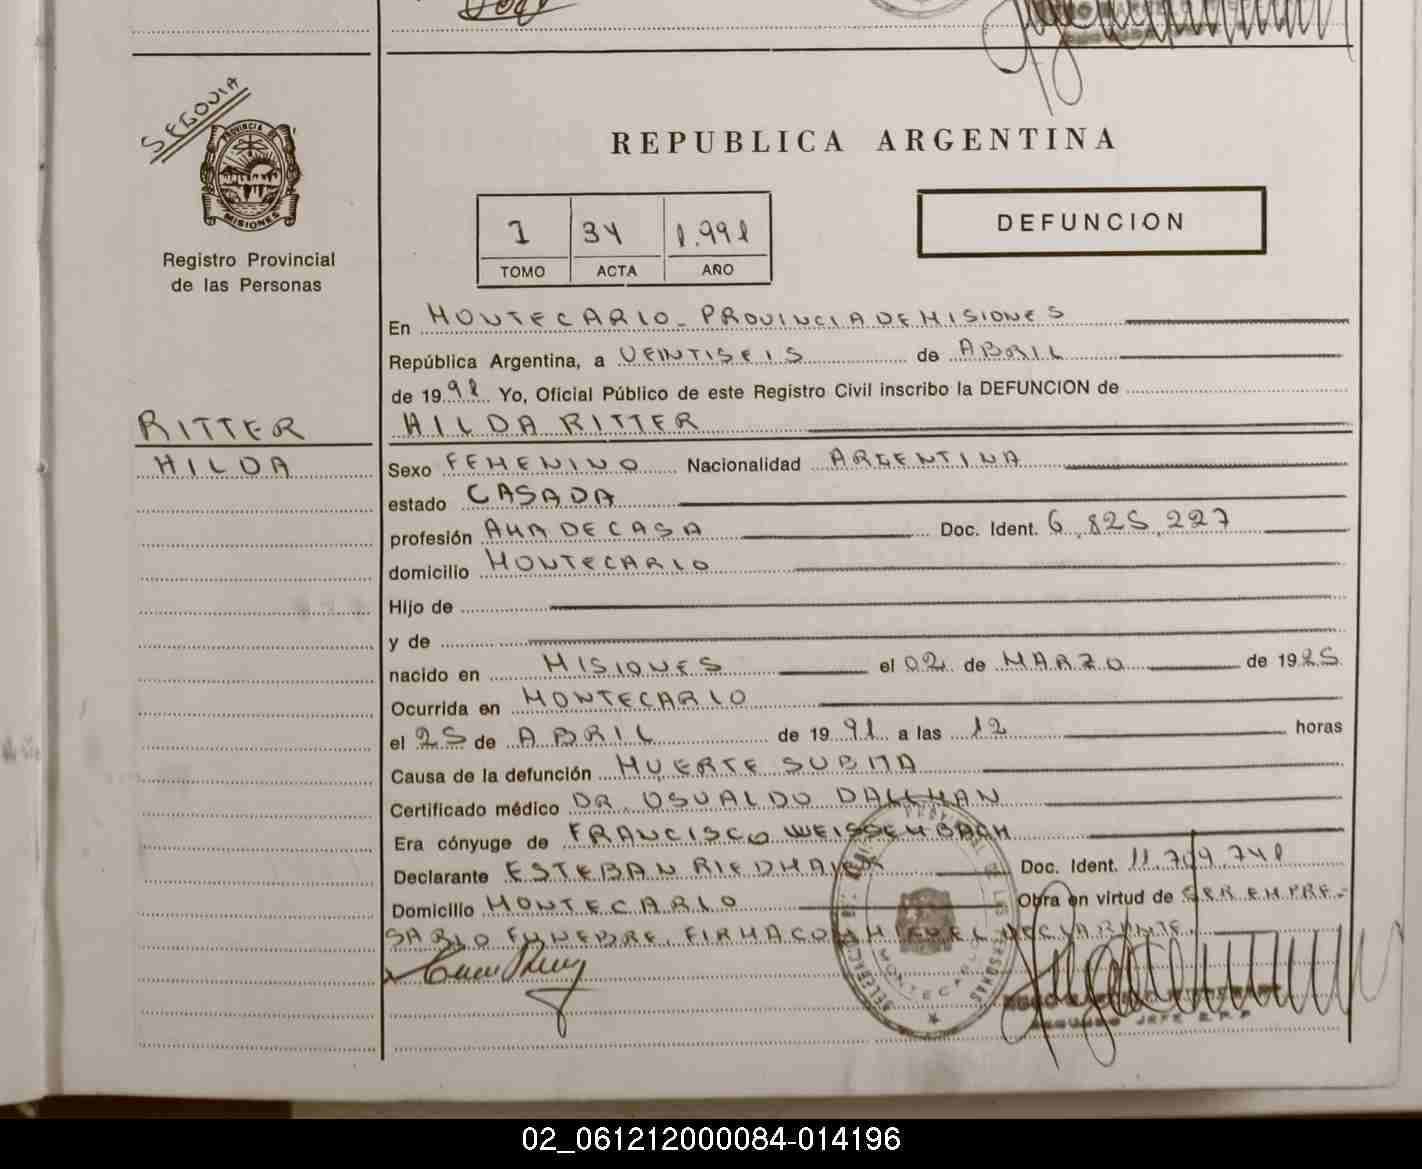 SEGOVIA
PROVINCIA DE
MISIONES
Registro Provincial
de las Personas
REPUBLICA ARGENTINA
1 34 1.991
TOMO ACTA AÑO
DEFUNCION
En MONTECARLO - PROVINCIA DE MISIONES
República Argentina, a VEINTISEIS de ABRIL
de 1991 Yo, Oficial Público de este Registro Civil inscribo la DEFUNCION de
RITTER HILDA RITTER
HILDA Sexo FEMENINO Nacionalidad ARGENTINA
estado CASADA
profesión AMA DE CASA Doc. Ident. 6.825.227
domicilio MONTECARLO
Hijo de
y de
nacido en MISIONES el 02 de MARZO de 1925
Ocurrida en MONTECARLO
el 25 de ABRIL de 1991 a las 12 horas
Causa de la defunción MUERTE SUBITA
Certificado médico DR. OSVALDO DALLMAN
Era cónyuge de FRANCISCO WEISSEMBACH
Declarante ESTEBAN RIEDMAIER Doc. Ident. 11.709.741
Domicilio MONTECARLO Obra en virtud de SER EMPRE-
SARIO FUNEBRE. FIRMA CONMIGO EL DECLARANTE.
MONTECARLO
SEGUNDO JEFE R.P.P
02_061212000084-014196